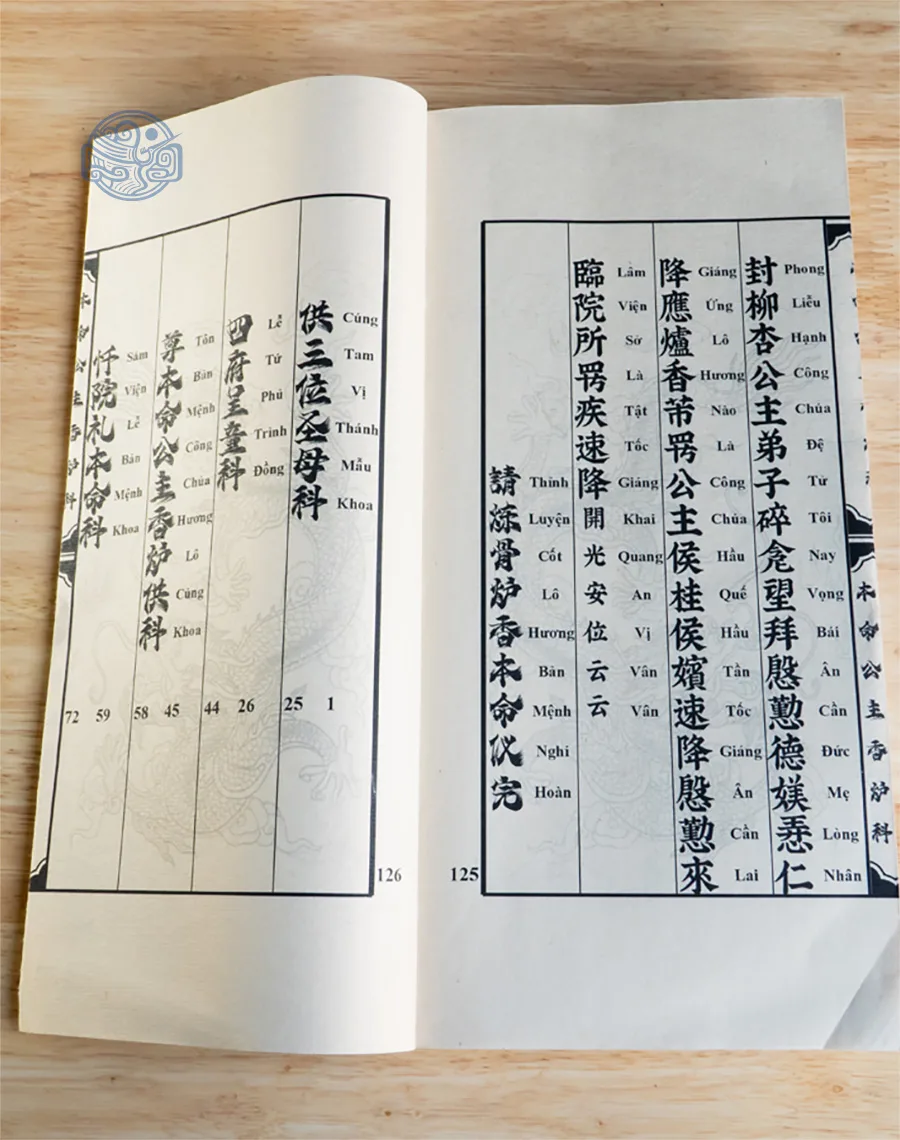 本命公主香炉科
封柳杏公主弟子碎望拜慇懃德媄𢚸仁
Phong Liễu Hạnh Công Chúa Đệ Tử Tôi Nay Vọng Bái Ân Cần Đức Mẹ Lòng Nhân
降應爐香芇公主侯桂侯嬪速降慇懃來
Giáng Ứng Lô Hương Nào Là Công Chúa Hầu Quế Hầu Tần Tốc Giáng Ân Cần Lai
臨院所疾速降開光安位云云
Lâm Viện Sở Là Tật Tốc Giáng Khai Quang An Vị Vân Vân
請骨炉香本命仪完
Thỉnh Luyện Cốt Lô Hương Bản Mệnh Nghi Hoàn
125
供三位圣母科
Cúng Tam Vị Thánh Mẫu Khoa
1
25
四府呈童科
Lễ Tứ Phủ Trình Đồng
26
44
尊本命公主香炉供科
Tôn Bản Mệnh Công Chúa Hương Lô Cúng Khoa
45
58
忏院礼本命科
Sám Viện Lễ Bản Mệnh Khoa
59
72
126
本命公主香炉科